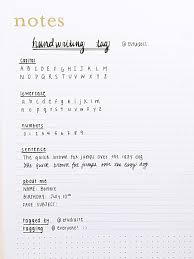 notes
handwriting tag
capital
A B C D E F G H I J K L M
N O P Q R S T U V W X Y Z
lowercase
a b c d e f g h i j k l m
n o p q r s t u v w x y z
numbers
0 1 2 3 4 5 6 7 8 9
sentence
The quick brown fox jumps over the lazy dog
the quick brown fox jumps over the lazy dog
about me
NAME:
BIRTHDAY: JULY
FAVE SUBJECT:
tagged by
tagging @ everyone! :)